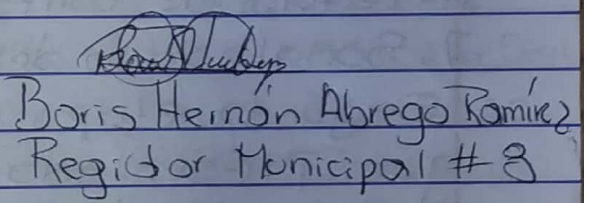 Boris Hernán Abrego Ramírez
Regidor Municipal # 8